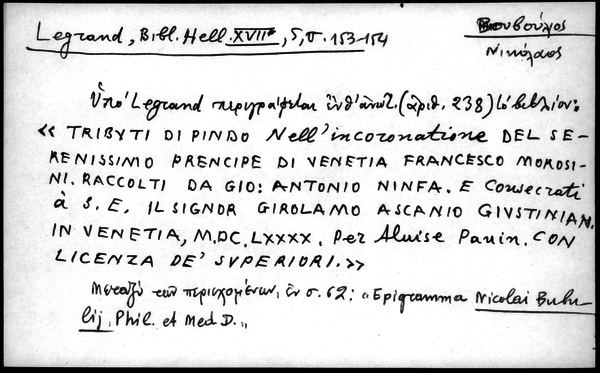 Legrand, Bibl. Hell. XVIIe, 5, σ. 153-154
Βουβούλιος
Νικόλαος
Ὑπὸ Legrand περιγράφεται ἔνθ' ἀνωτ. (ἀριθ. 238) τὸ βιβλίον:
« TRIBVTI DI PINDO Nell' incoronatione DEL SE-
RENISSIMO PRENCIPE DI VENETIA FRANCESCO MOROSI-
NI. RACCOLTI DA GIO: ANTONIO NINFA. E Consecrati
à S. E. IL SIGNOR GIROLAMO ASCANIO GIVSTINIAN.
IN VENETIA, M.DC.LXXXX. Per Aluise Pauin. CON
LICENZA DE' SVPERIORI.»
Μεταξὺ τῶν περιεχομένων, ἐν σ. 62: «Epigramma Nicolai Bubu-
lij. Phil. et Med D.„